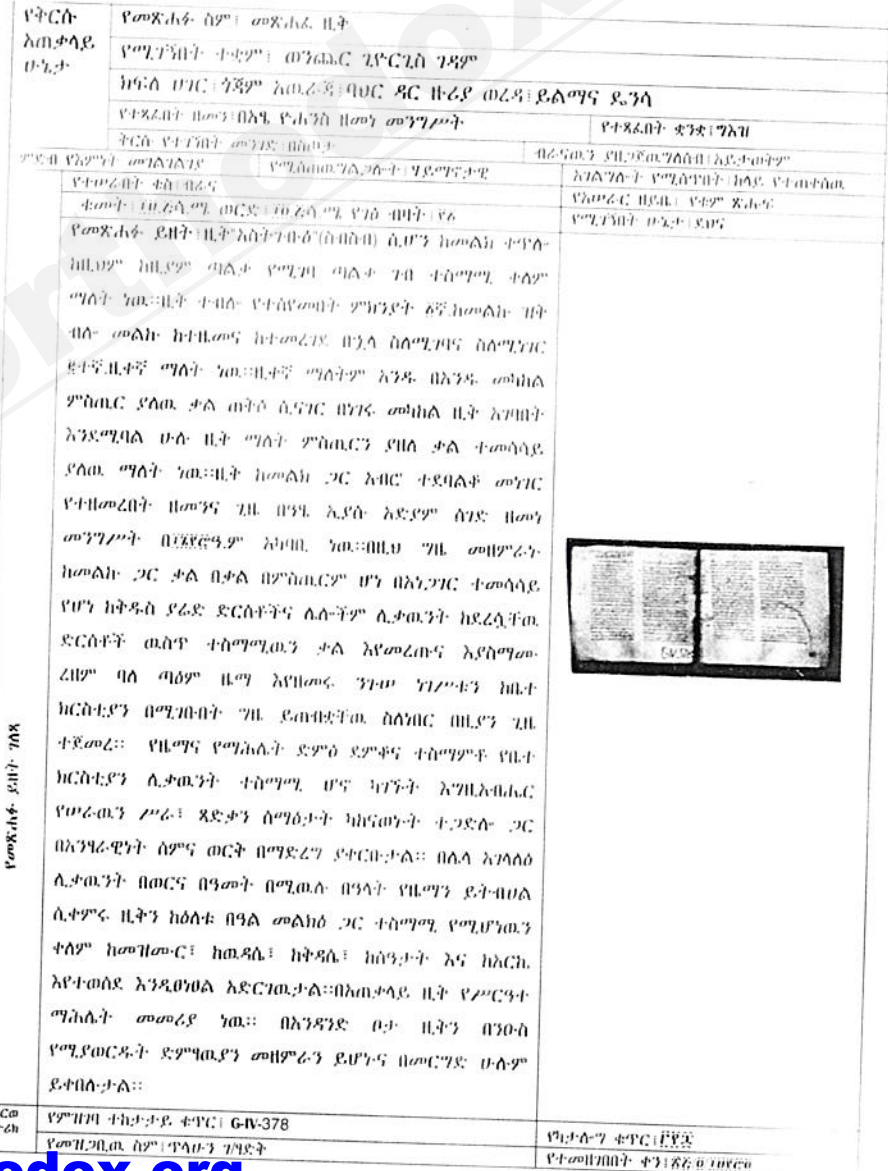 የቅርሱ አጠቃላይ ሁኔታ
የመጽሐፉ ስም፤ መጽሐፈ ዚቅ
የሚገኝበት ተቋም፤ ወንጨር ጊዮርጊስ ገዳም
ክፍለ ሀገር፤ጎጃም አዉራጃ፤ባህር ዳር ዙሪያ ወረዳ፤ይልማና ዴንሳ
የተጻፈበት ዘመን፤በአፄ ዮሐንስ ዘመነ መንግሥት
የተጻፈበት ቋንቋ፤ግእዝ
ቅርሱ የተገኘበት መንገድ፤በስጦታ
ብራናዉን ያዘጋጀዉ ግለሰብ፤አይታወቅም
ምድብ የእምነት መገልገልገያ
የሚሰጠዉ ግልጋሎት፤ሃይማኖታዊ
አገልግሎት የሚሰጥበት፤ከላይ የተጠቀሰዉ
የተሠራበት ቁስ፤ብራና
የአሠራር ዘይቤ፤ የቁም ጽሑፍ
ቁመት፤ ሴ.ሜ ወርድ፤ ሴ.ሜ የገፅ ብዛት፤
የሚገኝበት ሁኔታ፤ደህና
የመጽሐፉ ይዘት፤ዚቅ"አስተጋብዕ"(ስብስብ) ሲሆን ከመልክ ተቀጥሎ
ከዚህም ከዚያም ጣልቃ የሚገባ ጣልቃ ገብ ተስማሚ ቀለም
ማለት ነዉ።ዚቅ ተብሎ የተሰየመበት ምክንያት ፩ኛ.ከመልኩ ዝቅ
ብሎ መልኩ ከተዜመና ከተመረገደ በኋላ ስለሚገባና ስለሚነገር
፪ተኛ.ዚቀኛ ማለት ነዉ።ዚቀኛ ማለትም አንዱ በአንዱ መካከል
ምስጢር ያለዉ ቃል ጠቅሶ ሲናገር በነገሩ መካከል ዚቅ አገባበት
እንደሚባል ሁሉ ዚቅ ማለት ምስጢርን ያዘለ ቃል ተመሳሳይ
ያለዉ ማለት ነዉ።ዚቅ ከመልክ ጋር አብሮ ተደባልቆ መነገር
የተዘመረበት ዘመንና ጊዜ በዓፄ ኢያሱ አድያም ሰገድ ዘመነ
መንግሥት ዓ.ም አካባቢ ነዉ።በዚህ ግዜ መዘምራኑ
ከመልኩ ጋር ቃል በቃል በምስጢርም ሆነ በአነጋገር ተመሳሳይ
የሆነ ከቅዱስ ያሬድ ድርሰቶችና ሌሎችም ሊቃዉንት ከደረሷቸዉ
ድርሰቶች ዉስጥ ተስማሚዉን ቃል እየመረጡና እያስማሙ
ረዘም ባለ ጣዕም ዜማ እየዘመሩ ንጉሡ ነገሥቱን ከቤተ
ክርስቲያን በሚገቡበት ግዜ ይጠብቋቸዉ ስለነበር በዚያን ጊዜ
ተጀመረ። የዜማና የማሕሌት ድምፅ ደምቆና ተስማምቶ የቤተ
ክርስቲያን ሊቃዉንት ተስማሚ ሆኖ ካገኙት እግዚአብሔር
የሠራዉን ሥራ፤ ጻድቃን ሰማዕታት ካከናወኑት ተጋድሎ ጋር
በአንፃራዊነት ሰምና ወርቅ በማድረግ ያቀርቡታል። በሌላ አገላለፅ
ሊቃዉንት በወርና በዓመት በሚዉሉ በዓላት የዜማን ይትበሀል
ሲቀምሩ ዚቅን ከዕለቱ በዓል መልክዕ ጋር ተስማሚ የሚሆነዉን
ቀለም ከመዝሙር፤ ከዉዳሴ፤ ከቅዳሴ፤ ከሰዓታት እና ከአርኬ
እየተወሰደ እንዲፀነፀል አድርገዉታል።በአጠቃላይ ዚቅ የሥርዓተ
ማሕሌት መመሪያ ነዉ። በአንዳንድ ቦታ ዚቅን በንዑስ
የሚያወርዱት ድምፃዉያን መዘምራን ይሆኑና በመርግድ ሁሉም
ይቀበሉታል።
የመጽሐፉ ይዘት ገለጻ
የምዝገባ ተከታታይ ቁጥር፤ G-IV-378
የካታሎግ ቁጥር፤
የመዝጋቢዉ ስም፤ጥላሁን ገ/ፃድቅ
የተመዘገበበት ቀን፤